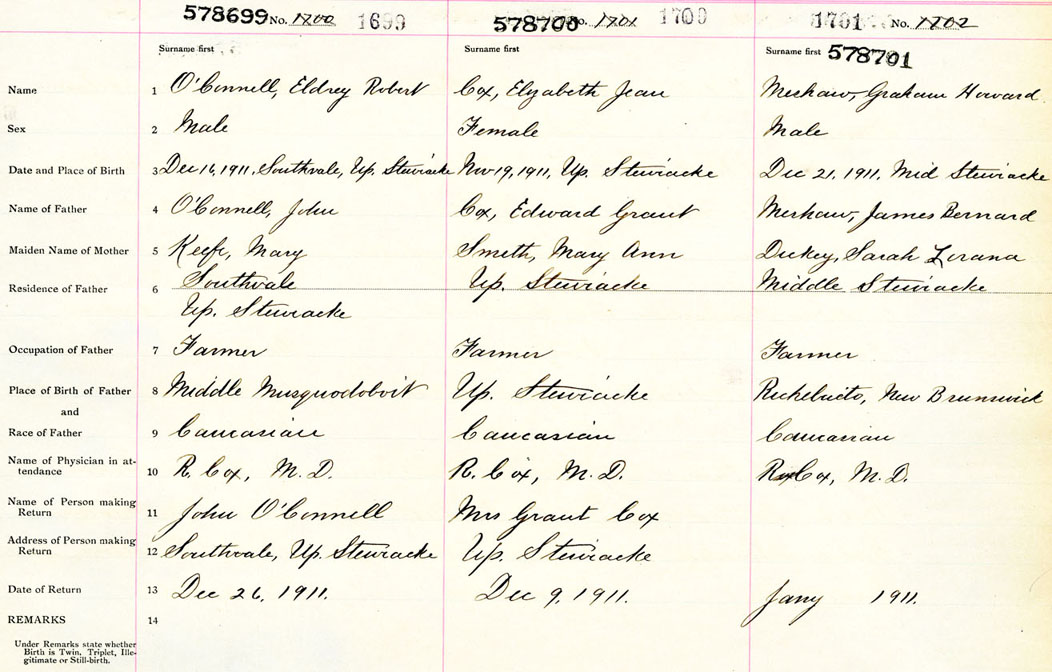 578699 No. 1700 1699 578700 No. 1701 1700 1701 No. 1702
Surname first Surname first Surname first 578701
Name 1 O'Connell, Eldrey Robert Cox, Elizabeth Jean Meshaw, Graham Howard
Sex 2 Male Female Male
Date and Place of Birth 3 Dec 16, 1911, Southvale, Up. Stewiacke Nov 19, 1911, Up. Stewiacke Dec 21, 1911, Mid Stewiacke
Name of Father 4 O'Connell, John Cox, Edward Grant Meshaw, James Bernard
Maiden Name of Mother 5 Keefe, Mary Smith, Mary Ann Dickey, Sarah Lorana
Residence of Father 6 Southvale Up. Stewiacke Middle Stewiacke
Up. Stewiacke
Occupation of Father 7 Farmer Farmer Farmer
Place of Birth of Father 8 Middle Musquodoboit Up. Stewiacke Richebucto, New Brunswick
and
Race of Father 9 Caucasian Caucasian Caucasian
Name of Physician in at-
tendance 10 R. Cox, M.D. R. Cox, M.D. R Cox, M.D.
Name of Person making
Return 11 John O'Connell Mrs Grant Cox
Address of Person making
Return 12 Southvale, Up. Stewiacke Up. Stewiacke
Date of Return 13 Dec 26, 1911. Dec 9, 1911. Jany 1911.
REMARKS 14
Under Remarks state whether
Birth is Twin, Triplet, Ille-
gitimate or Still-birth.